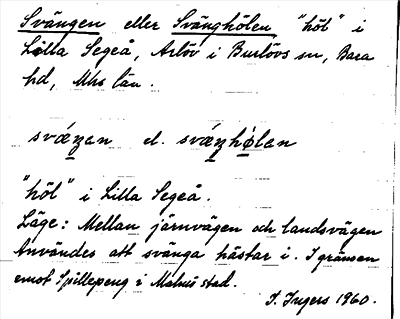 Svängen eller Svänghölen "höl" i
Lilla Segeå, Arlöv i Burlövs sn, Bara
hd, Mhs län.
sväŋen el. sväŋhölen
"höl" i Lilla Segeå.
Läge: Mellan järnvägen och landsvägen
Användes att svänga hästar i. I gränsen
emot Spillepeng i Malmö stad.
I. Ingers 1960.